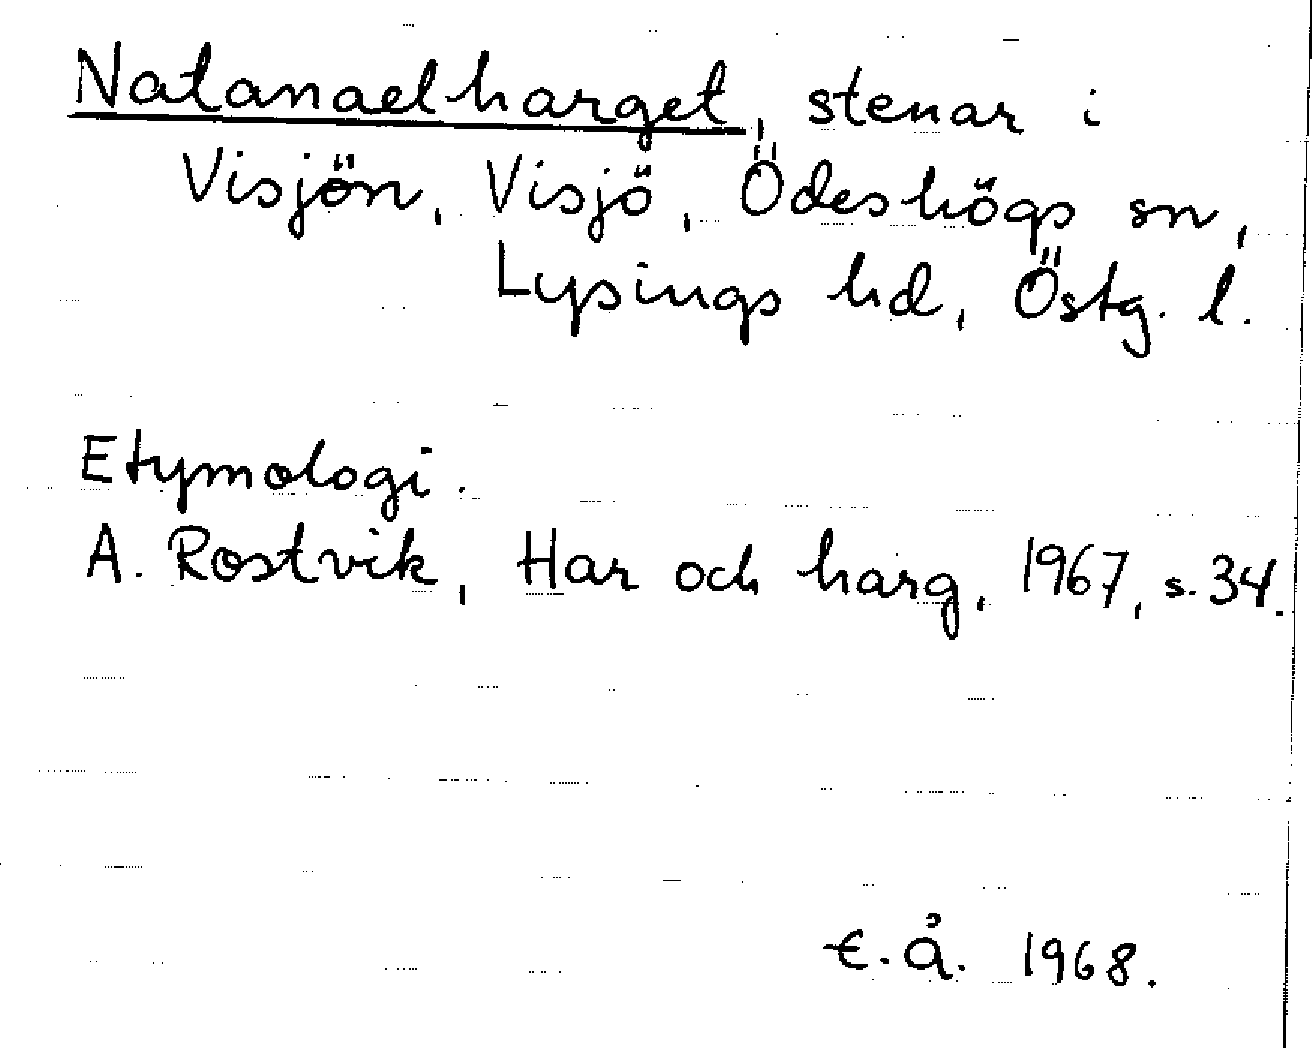 Natanaelharget, stenar i
Visjön, Visjö, Ödeshögs sn,
Lysings hd, Östg. l.
Etymologi.
A. Rostvik, Har och harg, 1967, s. 34.
E.Å. 1968.